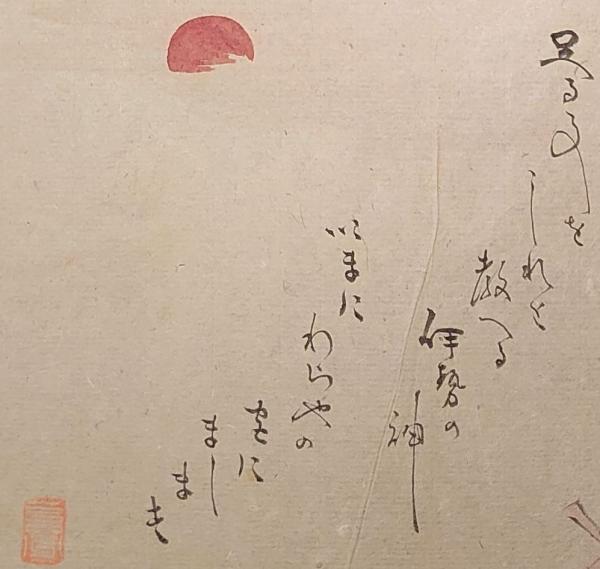 足る事を
しれと
教へる
伊勢の
神
いまに
わらやの
宮に
まし
ま
す